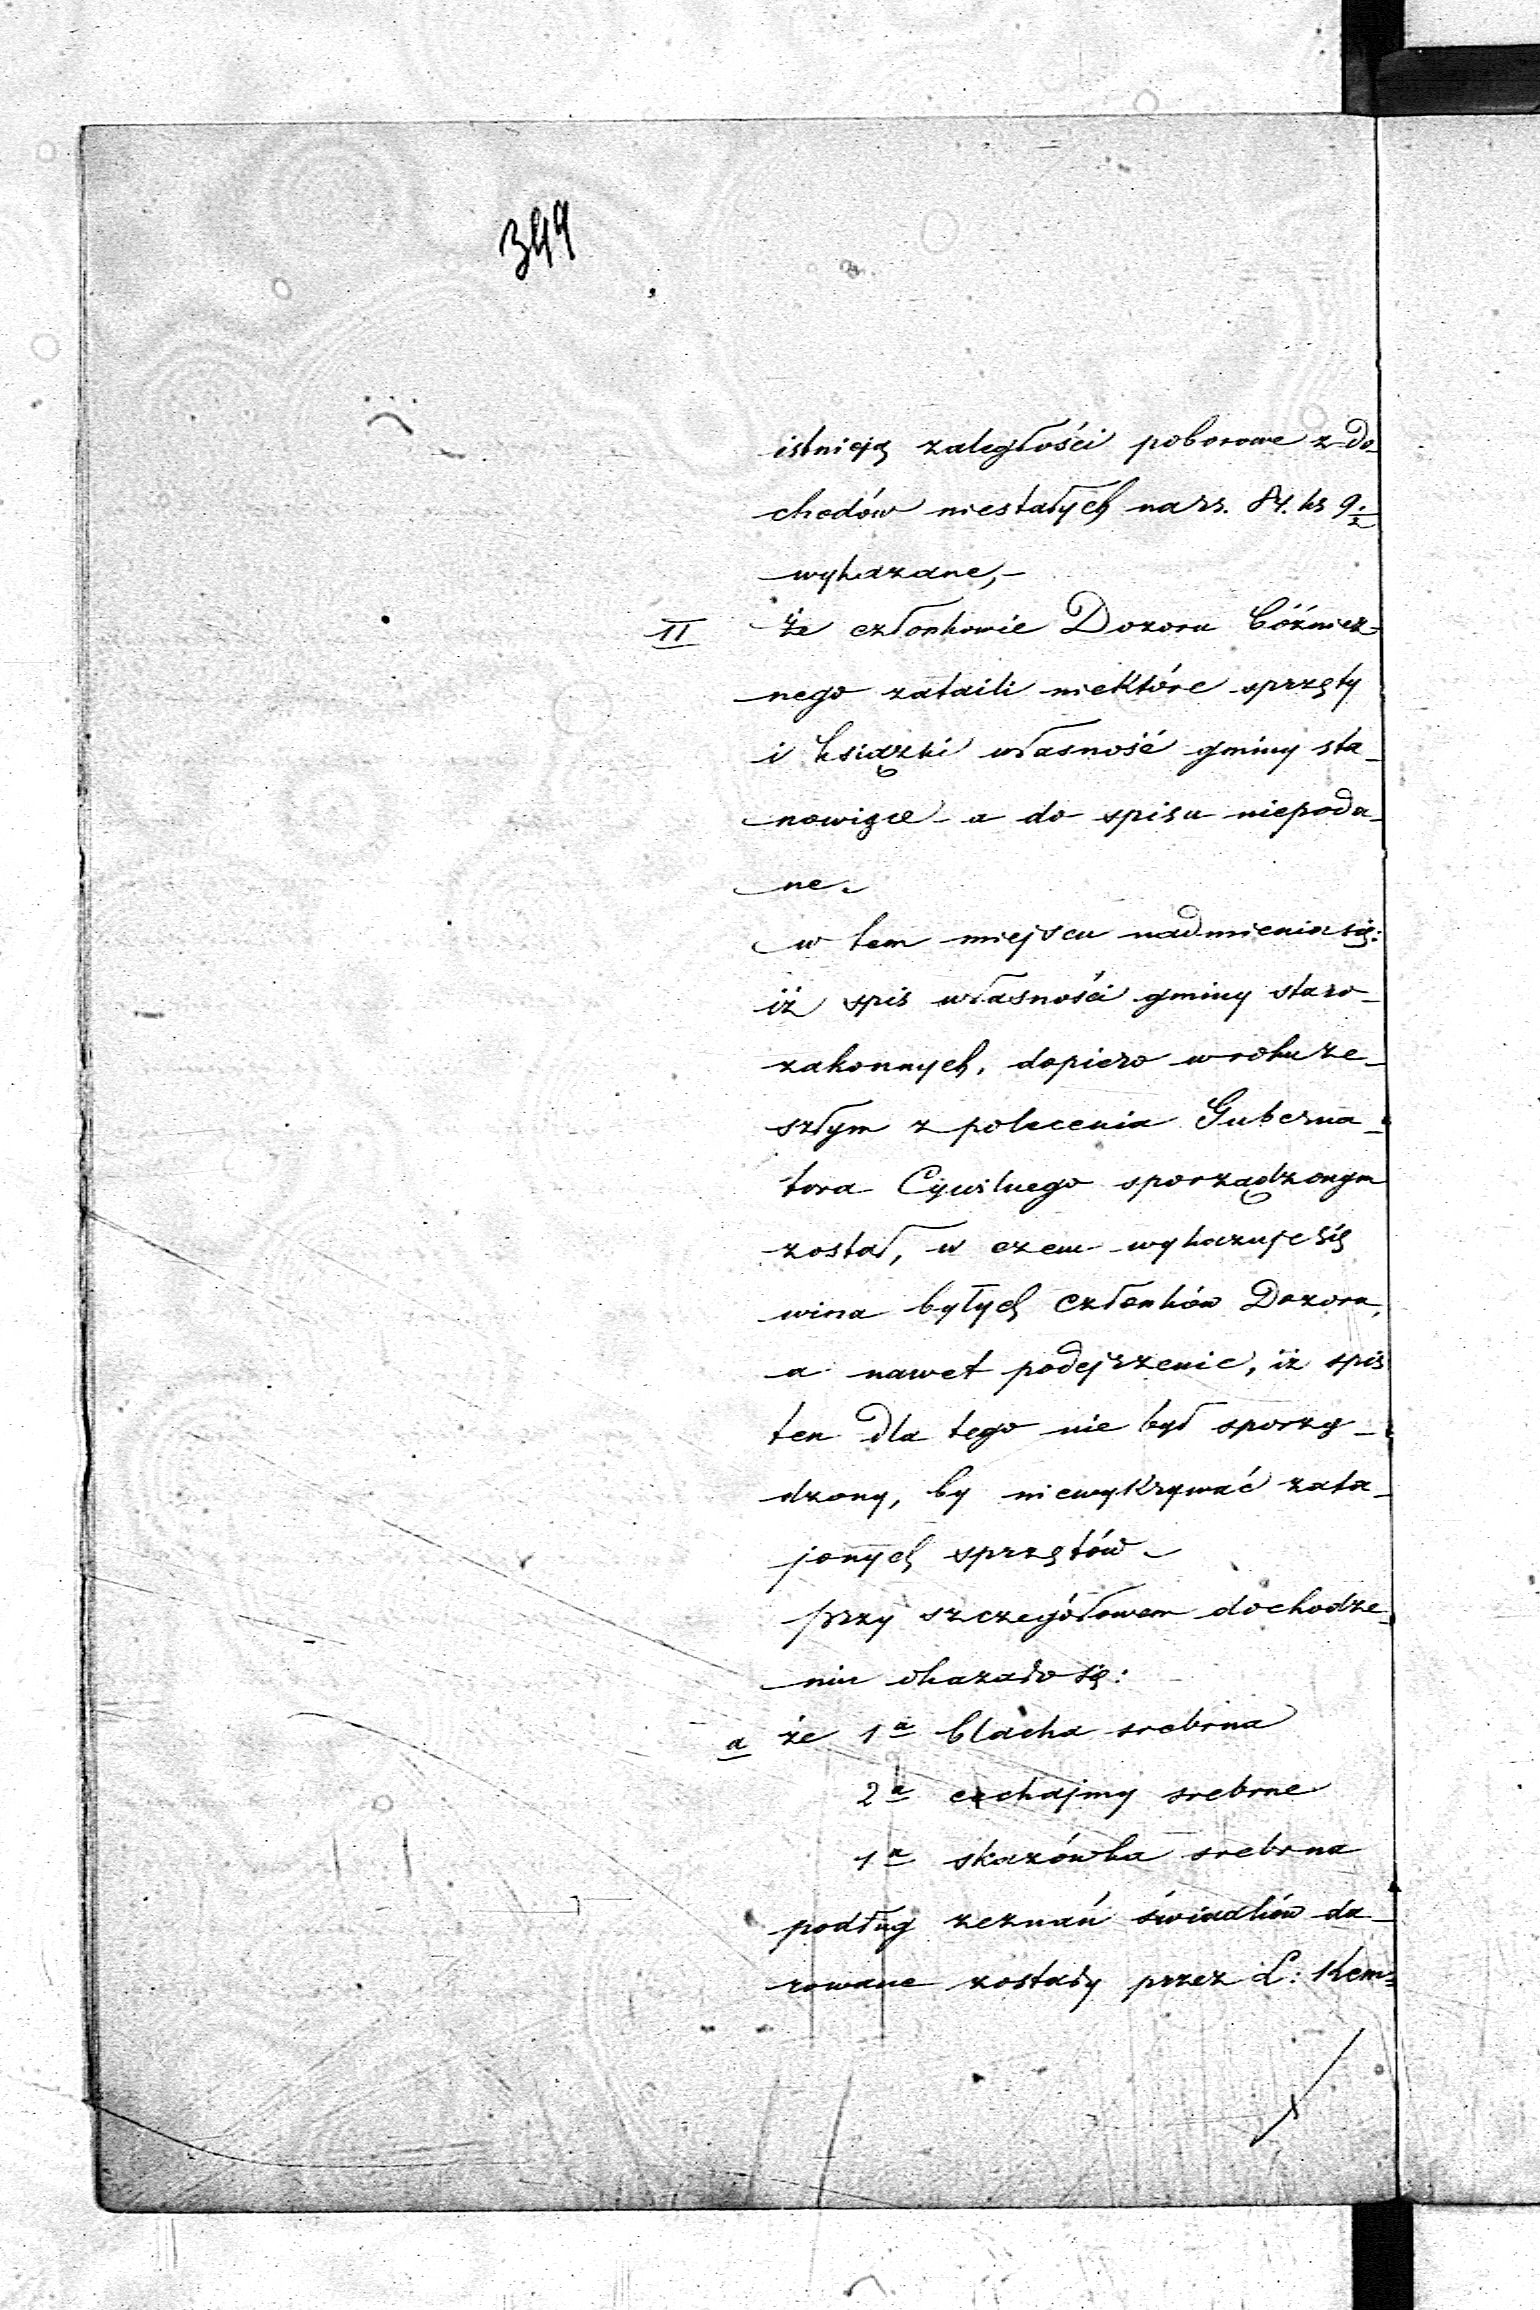 349
istnieją zaległości poborowe z do-
chodów niestałych na rs. 84. ks 9 1/2
wykazane,-
II Że członkowie Dozoru Bóżnicz-
nego zataili niektóre sprzęty
i książki własność gminy sta-
nowiące a do spisu niepoda-
ne.
w tem miejscu nadmienia się:
iż spis własności gminy staro-
zakonnych, dopiero w roku ze-
szłym z polecenia Guberna-
tora Cywilnego sporządzonym
został, w czem wykazuje się
wina byłych członków Dozoru,
a nawet podejrzenie, iż spis
ten dla tego nie był sporzą-
dzony, by niewykrywać zata-
jonych sprzętów.
przy szczegółowem dochodze-
niu okazało się:
a że 1a blacha srebrna
2a echajmy srebrne
1a skazówka srebrna
podług zeznań świadków da-
rowane zostały przez L: Kem-